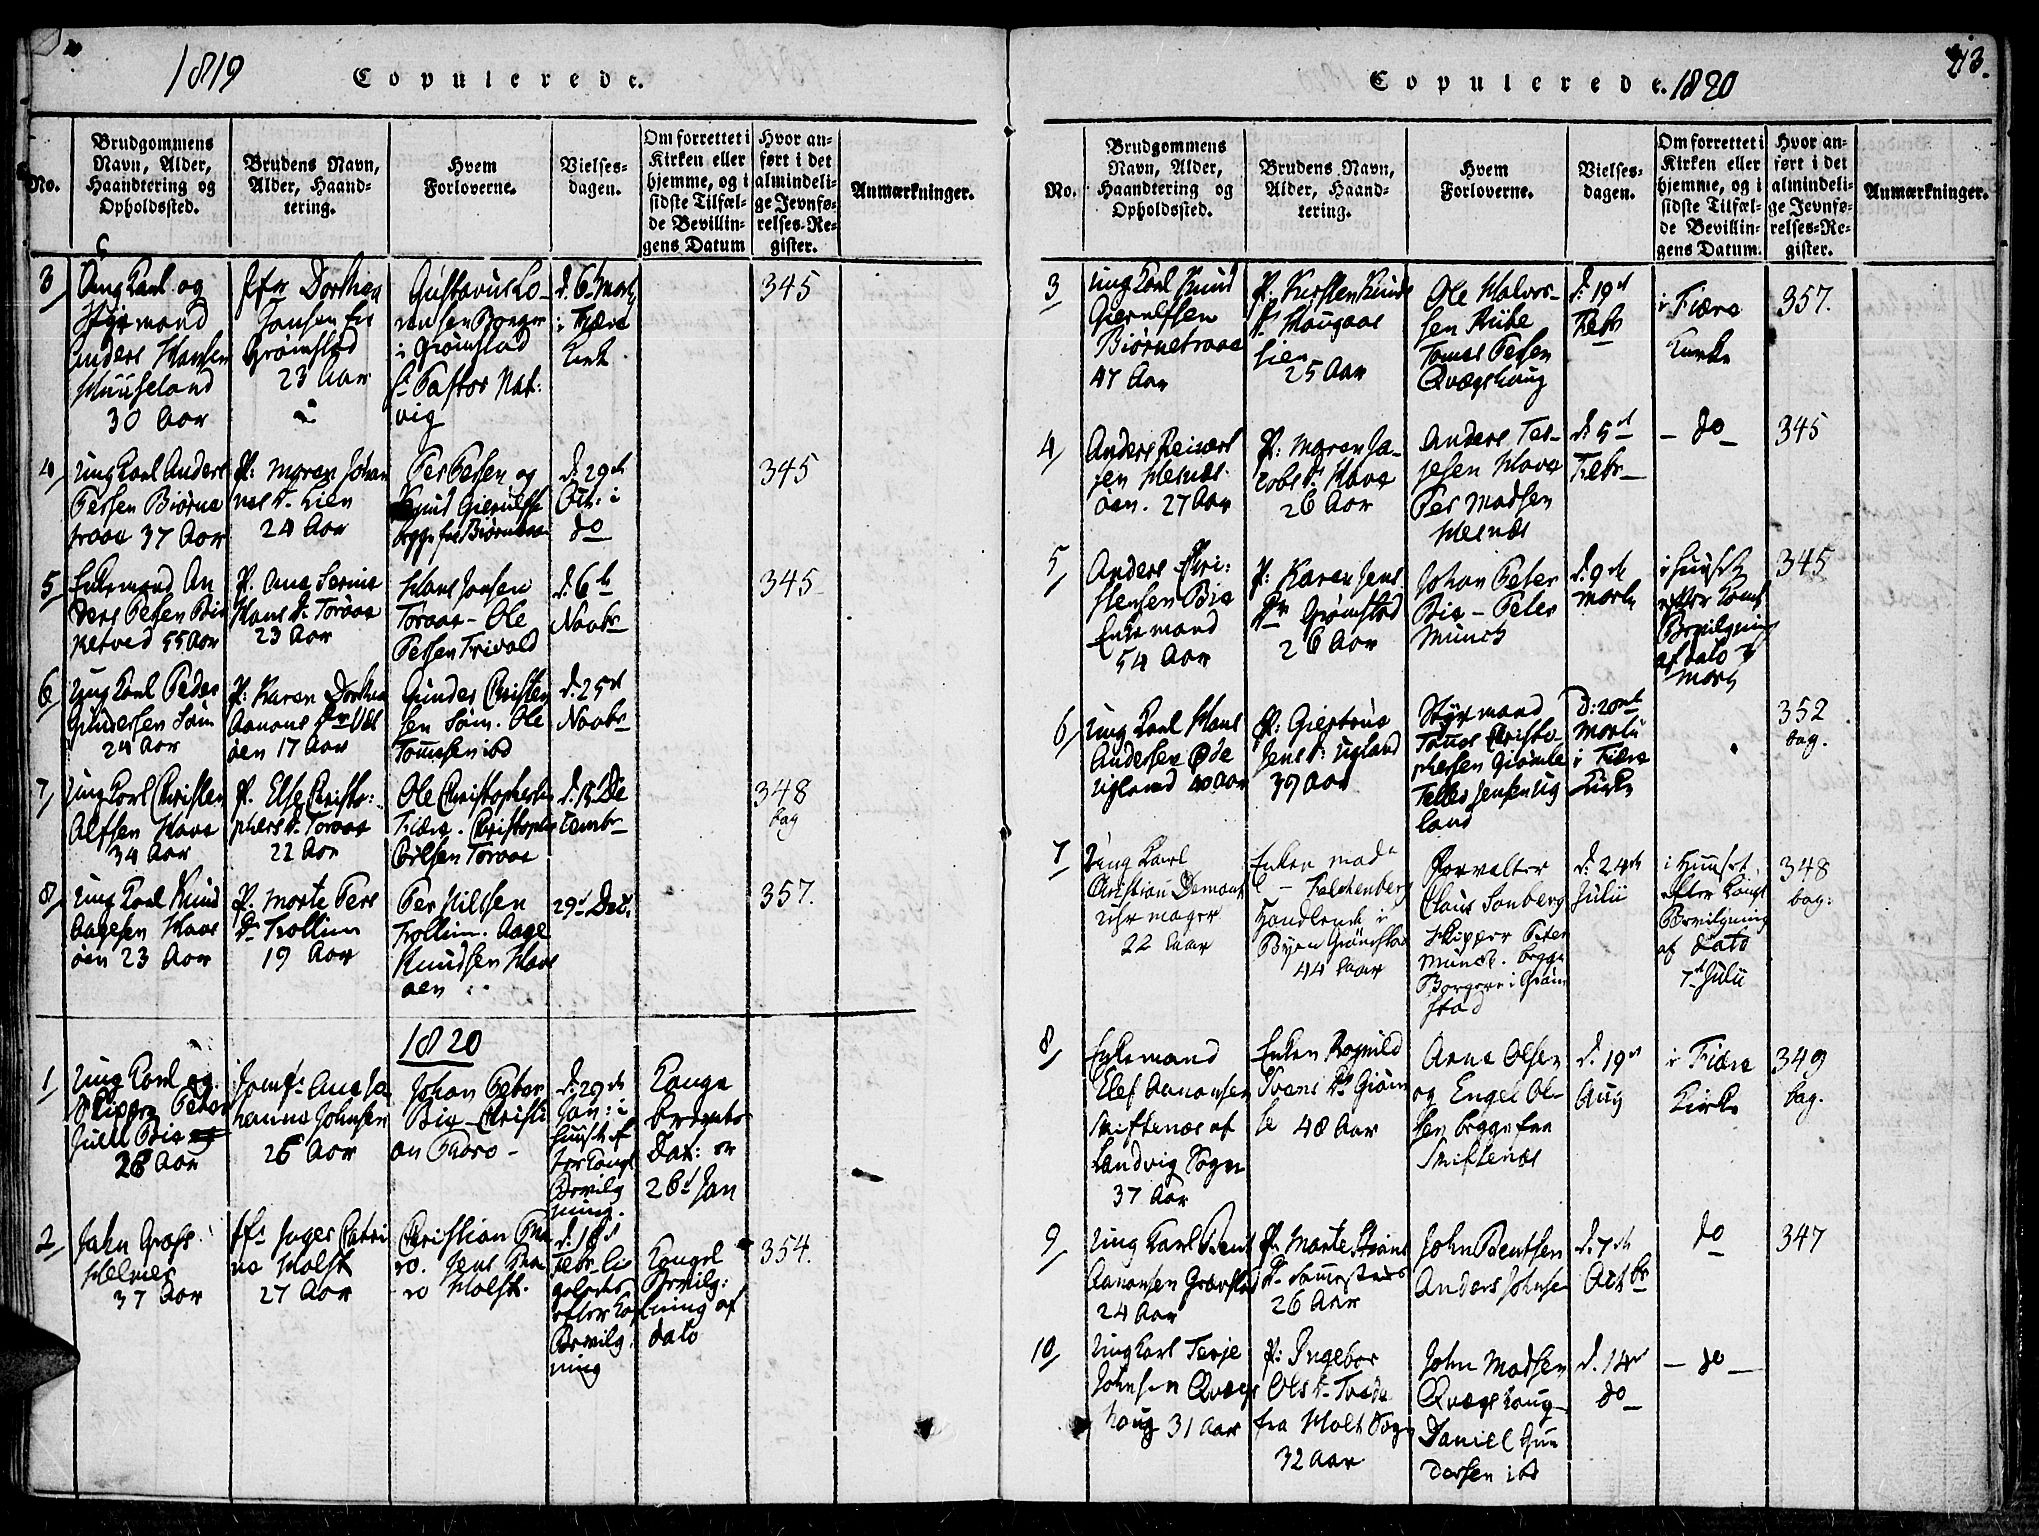 1819
Copulerede.
No.
Brudgommens
Navn, Alder,
Haandtering og
Opholdssted.
Brudens Navn,
Alder, Haand-
tering.
Hvem
Forloverne.
Vielses-
dagen.
Om forrettet i
Kirken eller
hjemme, og i
sidste Tilfæl-
de Bevillin-
gens Datum
Hvor an-
ført i det
almindeli-
ge Jevnfø-
relses-Re-
gister.
Anmærkninger.
3
Ung Karl og
Styrmand
Anders Hansen
30 Aar
Jfr Dorthea
Jansen fra
Grømstad
23 Aar
Gustavus Lo-
rensen Borger
i Grømstad
Hr Pastor Nat-
vig
d. 6te Marty
i Fjære
Kirk
345
4
Ung Karl Anders
Persen Biørne
traae 37 Aar
P: Maren Johan
nes D. Lien
24 Aar
Per Persen og
Knud Gierulfse
begge fra Biørnetraa
d. 29de
Oct: i
do
345
5
Enkemand An
ders Persen Bie
ketved 55 Aar
P. Ane Serine
Hans D. Toraae
23 Aar
Hans Jansen
Toraae - Ole
Persen Trivold
d. 6te
Novbr
345
6
Ung Karl Peder
Gundersen Søm
24 Aar
P: Karen Dorthea
Aanons Dr Ves
øen 17 Aar
Gunder Christen
sen Søm. Ole
Tomsen ibd
d. 25de
Novbr
7
Ung Karl Christen
Alfsen Have
34 Aar
P. Else Christo:
phers D. Toraae
22 Aar
Ole Christophersen
Fiære. Christopher
Toraae
d. 15 De
cembr
348
bag
8
Ung Karl Knud
Aagesen Have
øen 23 Aar
P. Marte Pers
D. Trollim
19 Aar
Per Nilsen
Trollim. Aage
Knudsen Have
øen
29d Dec.
357.
1820
1
Ung Karl og
Skipper Peter
Juell Bie
26 Aar
Jomfr Ane Jo
hanne Johnsen
26 Aar
Johan Peter
Bie - Christi
an Thoro -
d. 29de
Jan: i
Huuset ef
ter Kongl
Bevilg
ning.
Konge
brevets
Dat: er
26d Jan
2
Jahn Grass
37 Aar
Jfr Inger Catri
ne Holst
27 Aar
Christian Tho
ro. Jens Tho
ro Holst.
d. 18d
Febr. Li
geledes
efter Kgl
Bevilg
ning
Kongel
Bevilg:
ning af
dato
354.
Copulerede.
1820
213.
No.
Brudgommens
Navn, Alder,
Haandtering og
Opholdssted.
Brudens Navn,
Alder, Haand-
tering.
Hvem
Forloverne.
Vielses-
dagen.
Om forrettet i
Kirken eller
hjemme, og i
sidste Tilfæl-
de Bevillin-
gens Datum.
Hvor an-
ført i det
almindeli-
ge Jevnfø-
relses-Re-
gister.
Anmærkninger.
3
Ung Karl Knud
Gierulfsen
Biørnetraae
47 Aar
P. Kirsten Knuds
D. Haugaas
Lien
25 Aar
Ole Halvor-
sen Kube
Tomas Persen
Qvægshaug
d: 19de
Febr
i Fiære
Kirke
357.
4
Anders Reinert
sen Hesnes-
øen. 27 Aar
P: Maren Ja-
cobs D. Have
26 Aar
Anders Ter-
jesen Have
Per Madsen
Hesnæs
d. 5te
Febr
- do -
345
5
Anders Chri-
stensen Bie
Enkemand
54 Aar
P: Karen Jens
Dr Grømstad
26 Aar
Johan Peter
Bie - Peter
Munch
d. 9de
Marty
i Huuset
efter Kongl
Bevilgning
af dato 7
Marty
345
6
Ung Karl Hans
Andersen Øde
Ugland 40 Aar
P: Giertrue
Jens D. Ugland
39 Aar
Styrmand
Tomas Christo-
phersen Giømle
Telles Jensen Ug
land
D: 20de
Martii
i Fiære
Kirke
352
bag.
7
Ung Karl
Christian Demant
Uhrmager
22 Aar
Enken Made
- Falchenberg
Handlende i
Byen Grømstad
44 Aar
Forvalter
Claus Sonberg
Skipper Peter
Munch. begge
Borgere i Grøm
stad
d. 24de
Julii
i Huuset
efter Kongl
Bevilgning
af Dato
7d Julii
348
bag:
8
Enkemand
Elef Aanonsen
Skiftenæs af
Landvig Sogn
37 Aar
Enken Rognild
Svens D. Giøm
le 48 Aar
Arne Olsen
og Engel Ol-
sen begge fra
Skiftenæs
d. 19de
Aug
i Fiære
Kirke
349
bag.
9
Ung Karl Bent
Aanonsen Grøfstad
24 Aar
P. Marte Steins
D.
26 Aar
John Bentsen
Anders Johnsen
d. 7de
Octbr
do
347
10
Ung Karl Terje
Johnsen Qvægs
haug 31 Aar
P: Ingebor
Ols D. Tvede
fra Holt Sogn
32 Aar
John Madsen
Qvægshaug
Daniel Gun
dersen ibd
d. 14de
do
- do -